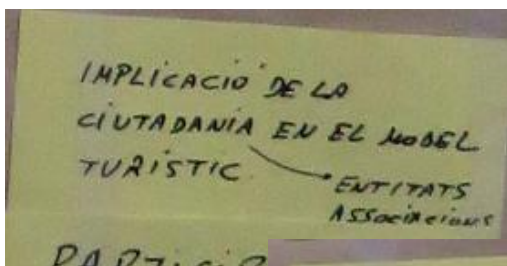 IMPLICACIÓ DE LA
CIUTADANIA EN EL MODEL
TURÍSTIC
ENTITATS
ASSOCIACIONS